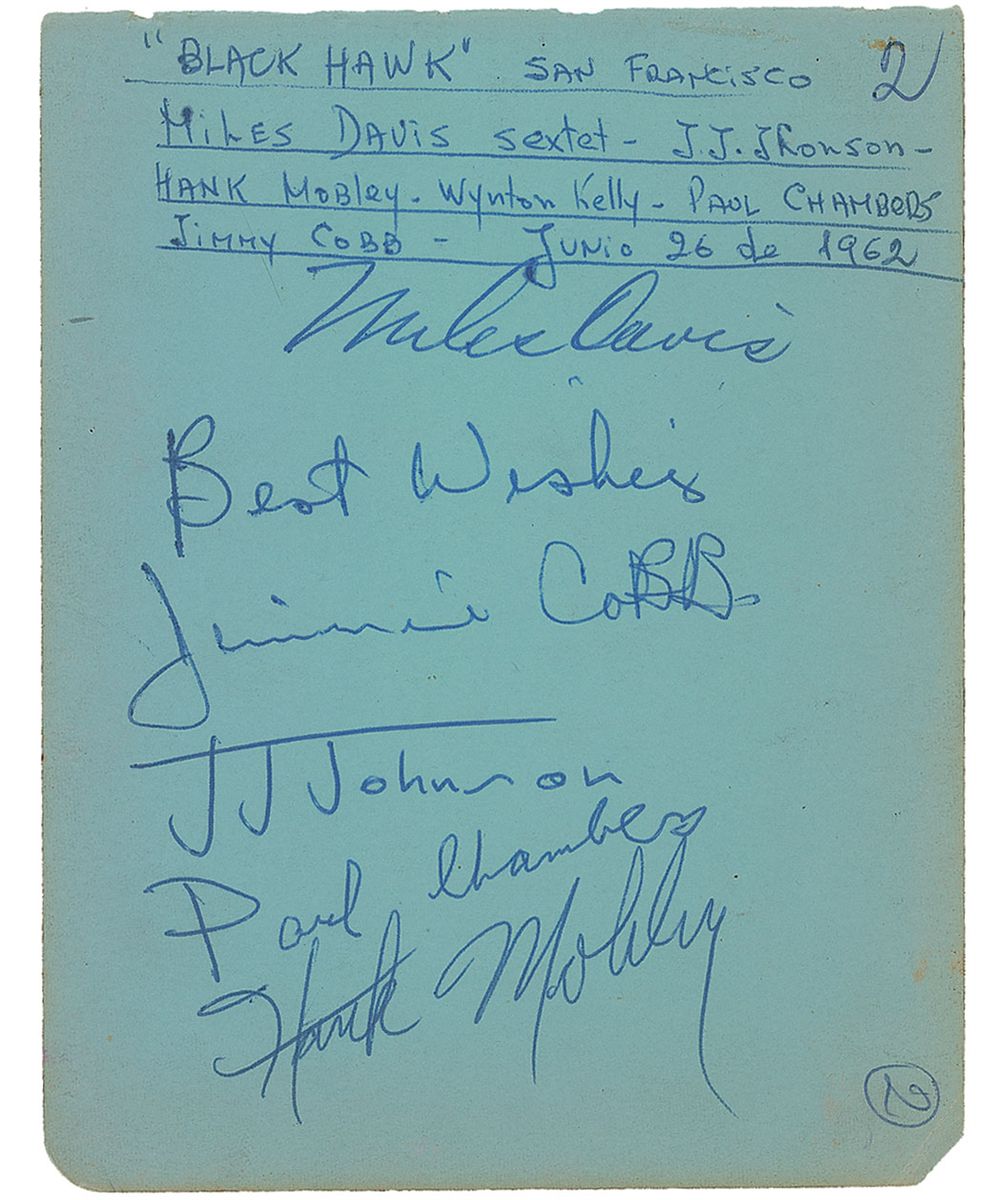 "BLACK HAWK" SAN FRANCISCO 2
MILES DAVIS sextet - J.J. Jhonson -
HANK MOBLEY - Wynton Kelly - PAUL CHAMBERS
JIMMY COBB - JUNIO 26 de 1962
Miles Davis
Best Wishes
Jimmie CoBB
JJ Johnson
Paul Chambers
Hank Mobley
2